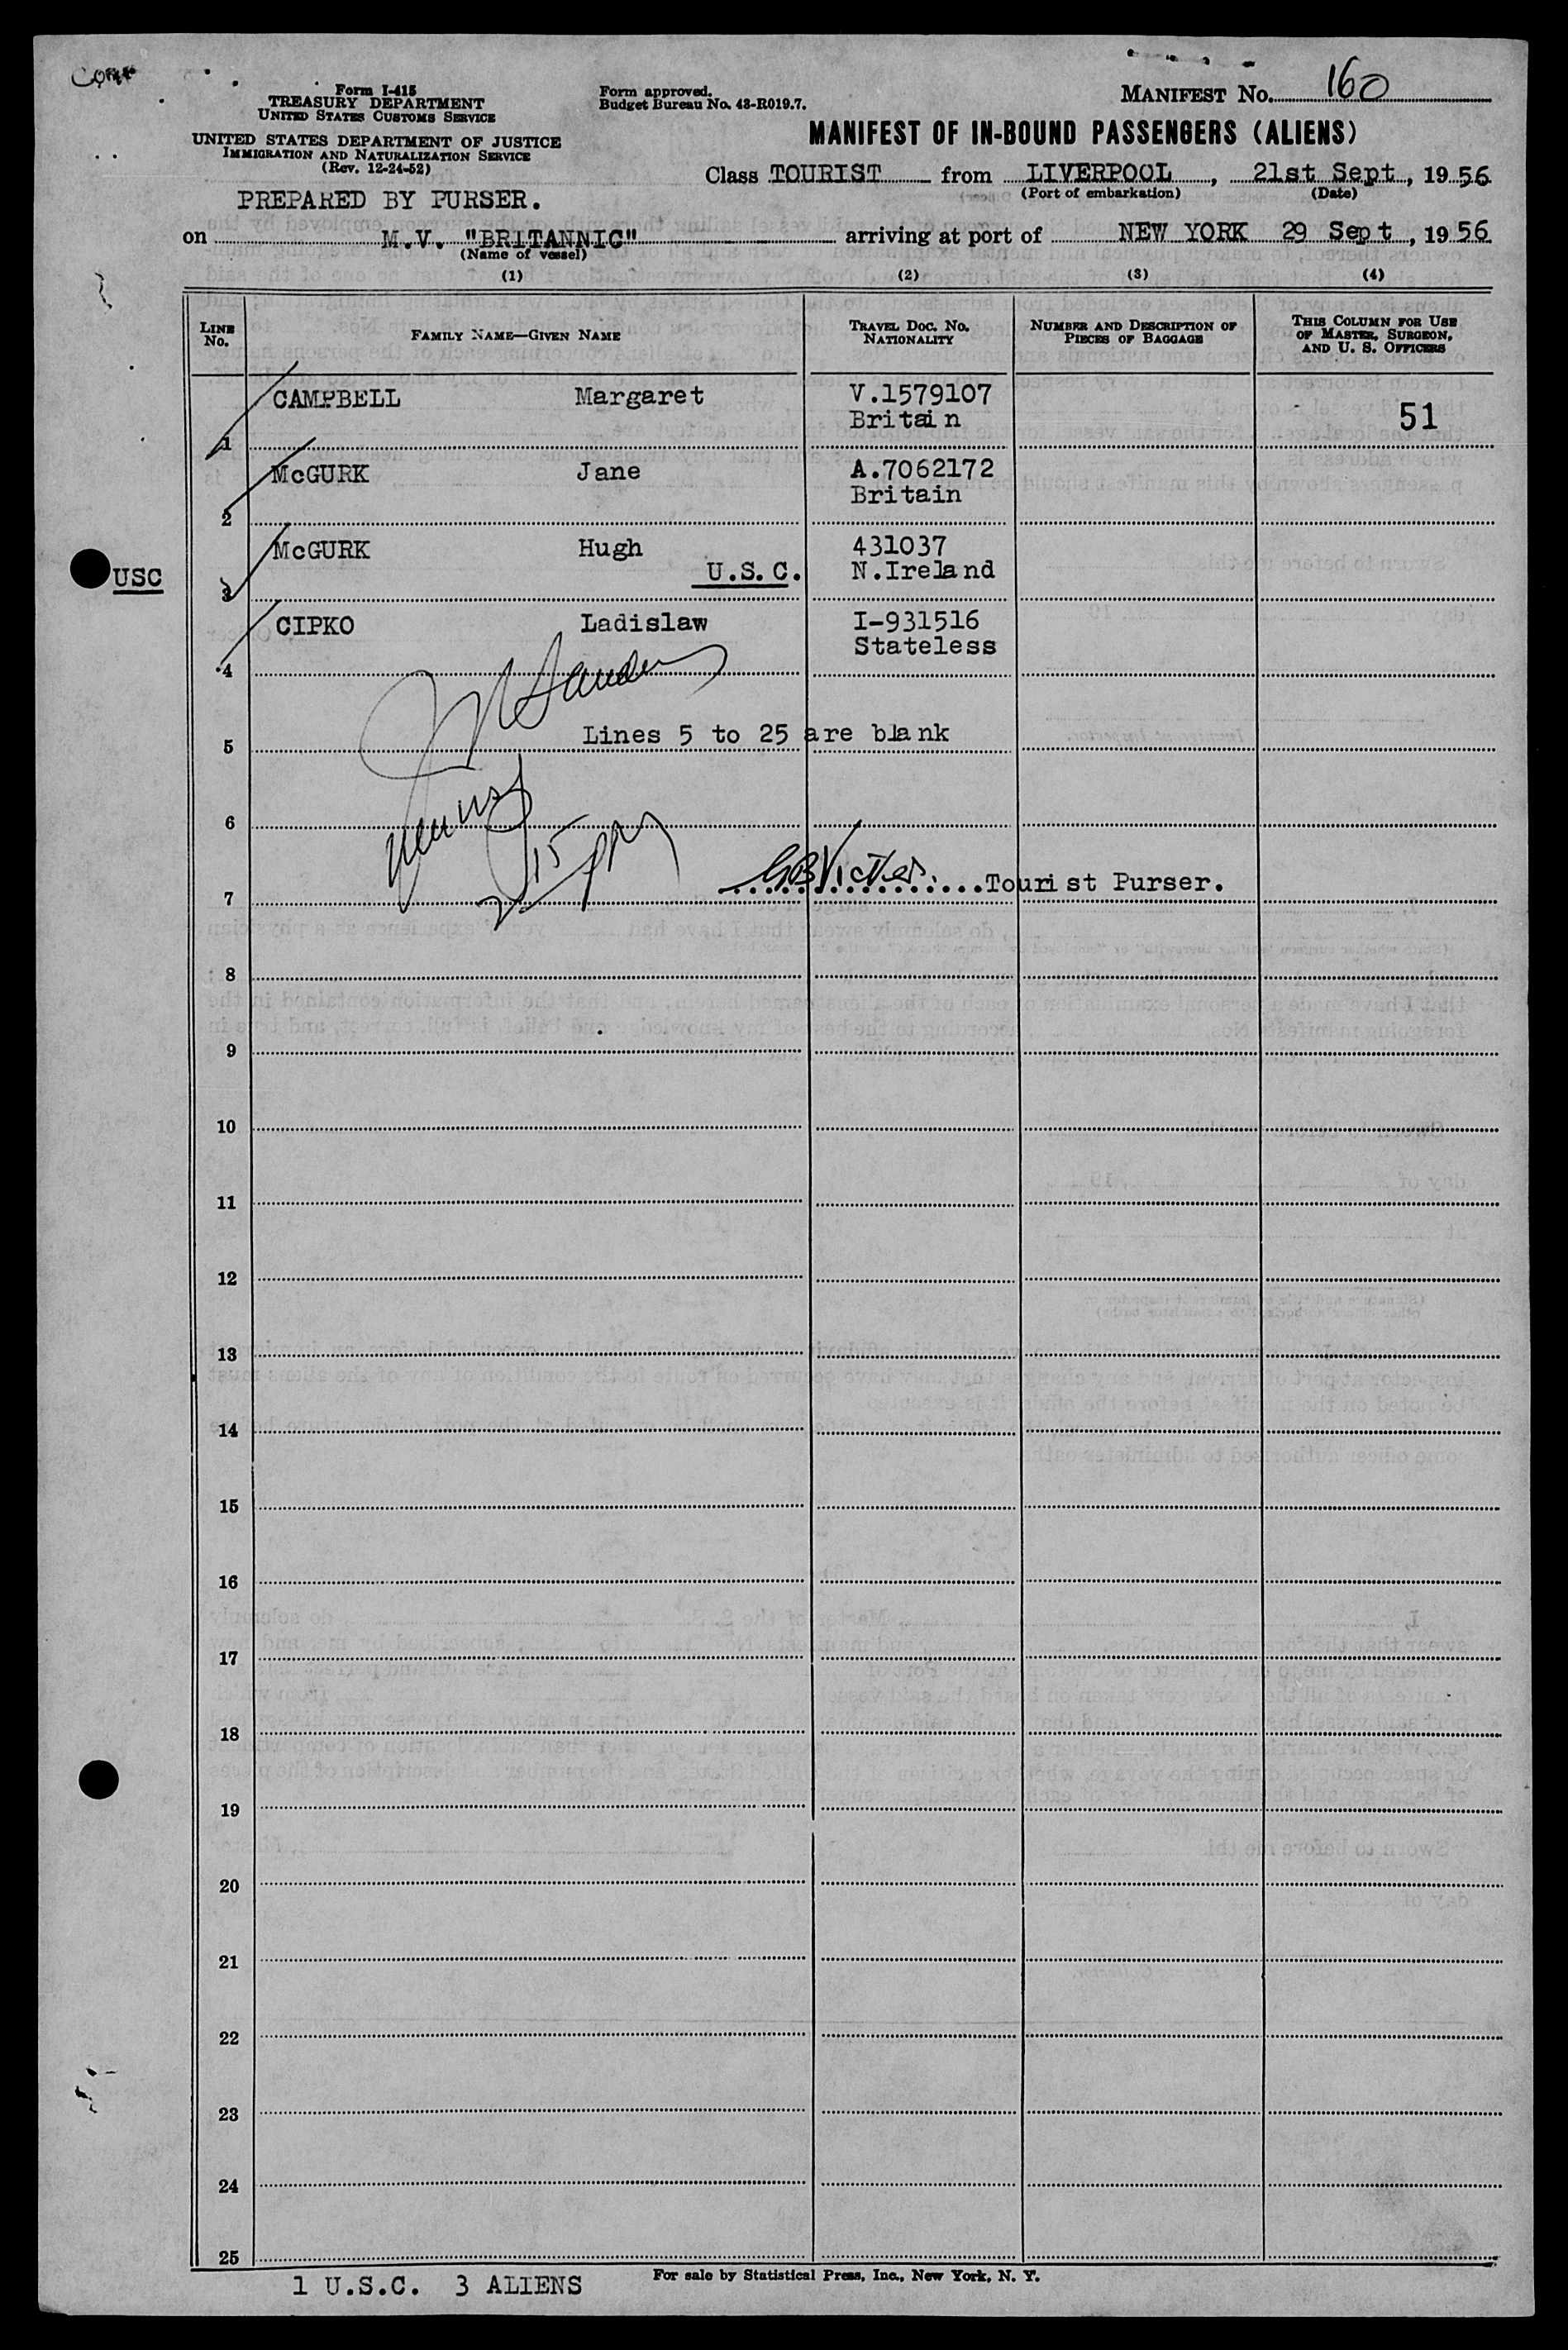 MANIFEST No. 160
Form I-415
TREASURY DEPARTMENT
UNITED STATES CUSTOMS SERVICE
UNITED STATES DEPARTMENT OF JUSTICE
IMMIGRATION AND NATURALIZATION SERVICE
(Rev. 12-24-52)
Form approved.
Budget Bureau No. 43-R019.7.
MANIFEST OF IN-BOUND PASSENGERS (ALIENS)
Class TOURIST from LIVERPOOL, 21st Sept, 1956
(Port of embarkation) (Date)
PREPARED BY PURSER.
on M.V. "BRITANNIC" arriving at port of NEW YORK 29 Sept, 1956
(Name of vessel)
(1) (2) (3) (4)
LINE No.
FAMILY NAME—GIVEN NAME
TRAVEL DOC. No. NATIONALITY
NUMBER AND DESCRIPTION OF PIECES OF BAGGAGE
THIS COLUMN FOR USE OF MASTER, SURGEON, AND U. S. OFFICERS
CAMPBELL Margaret V.1579107
Britain 51
1
McGURK Jane A.7062172
Britain
2
McGURK Hugh 431037
USC U.S.C. N.Ireland
3
CIPKO Ladislaw I-931516
Stateless
4
Lines 5 to 25 are blank
5
6
Tourist Purser.
7
8
9
10
11
12
13
14
15
16
17
18
19
20
21
22
23
24
25
1 U.S.C. 3 ALIENS
For sale by Statistical Press, Inc., New York, N. Y.